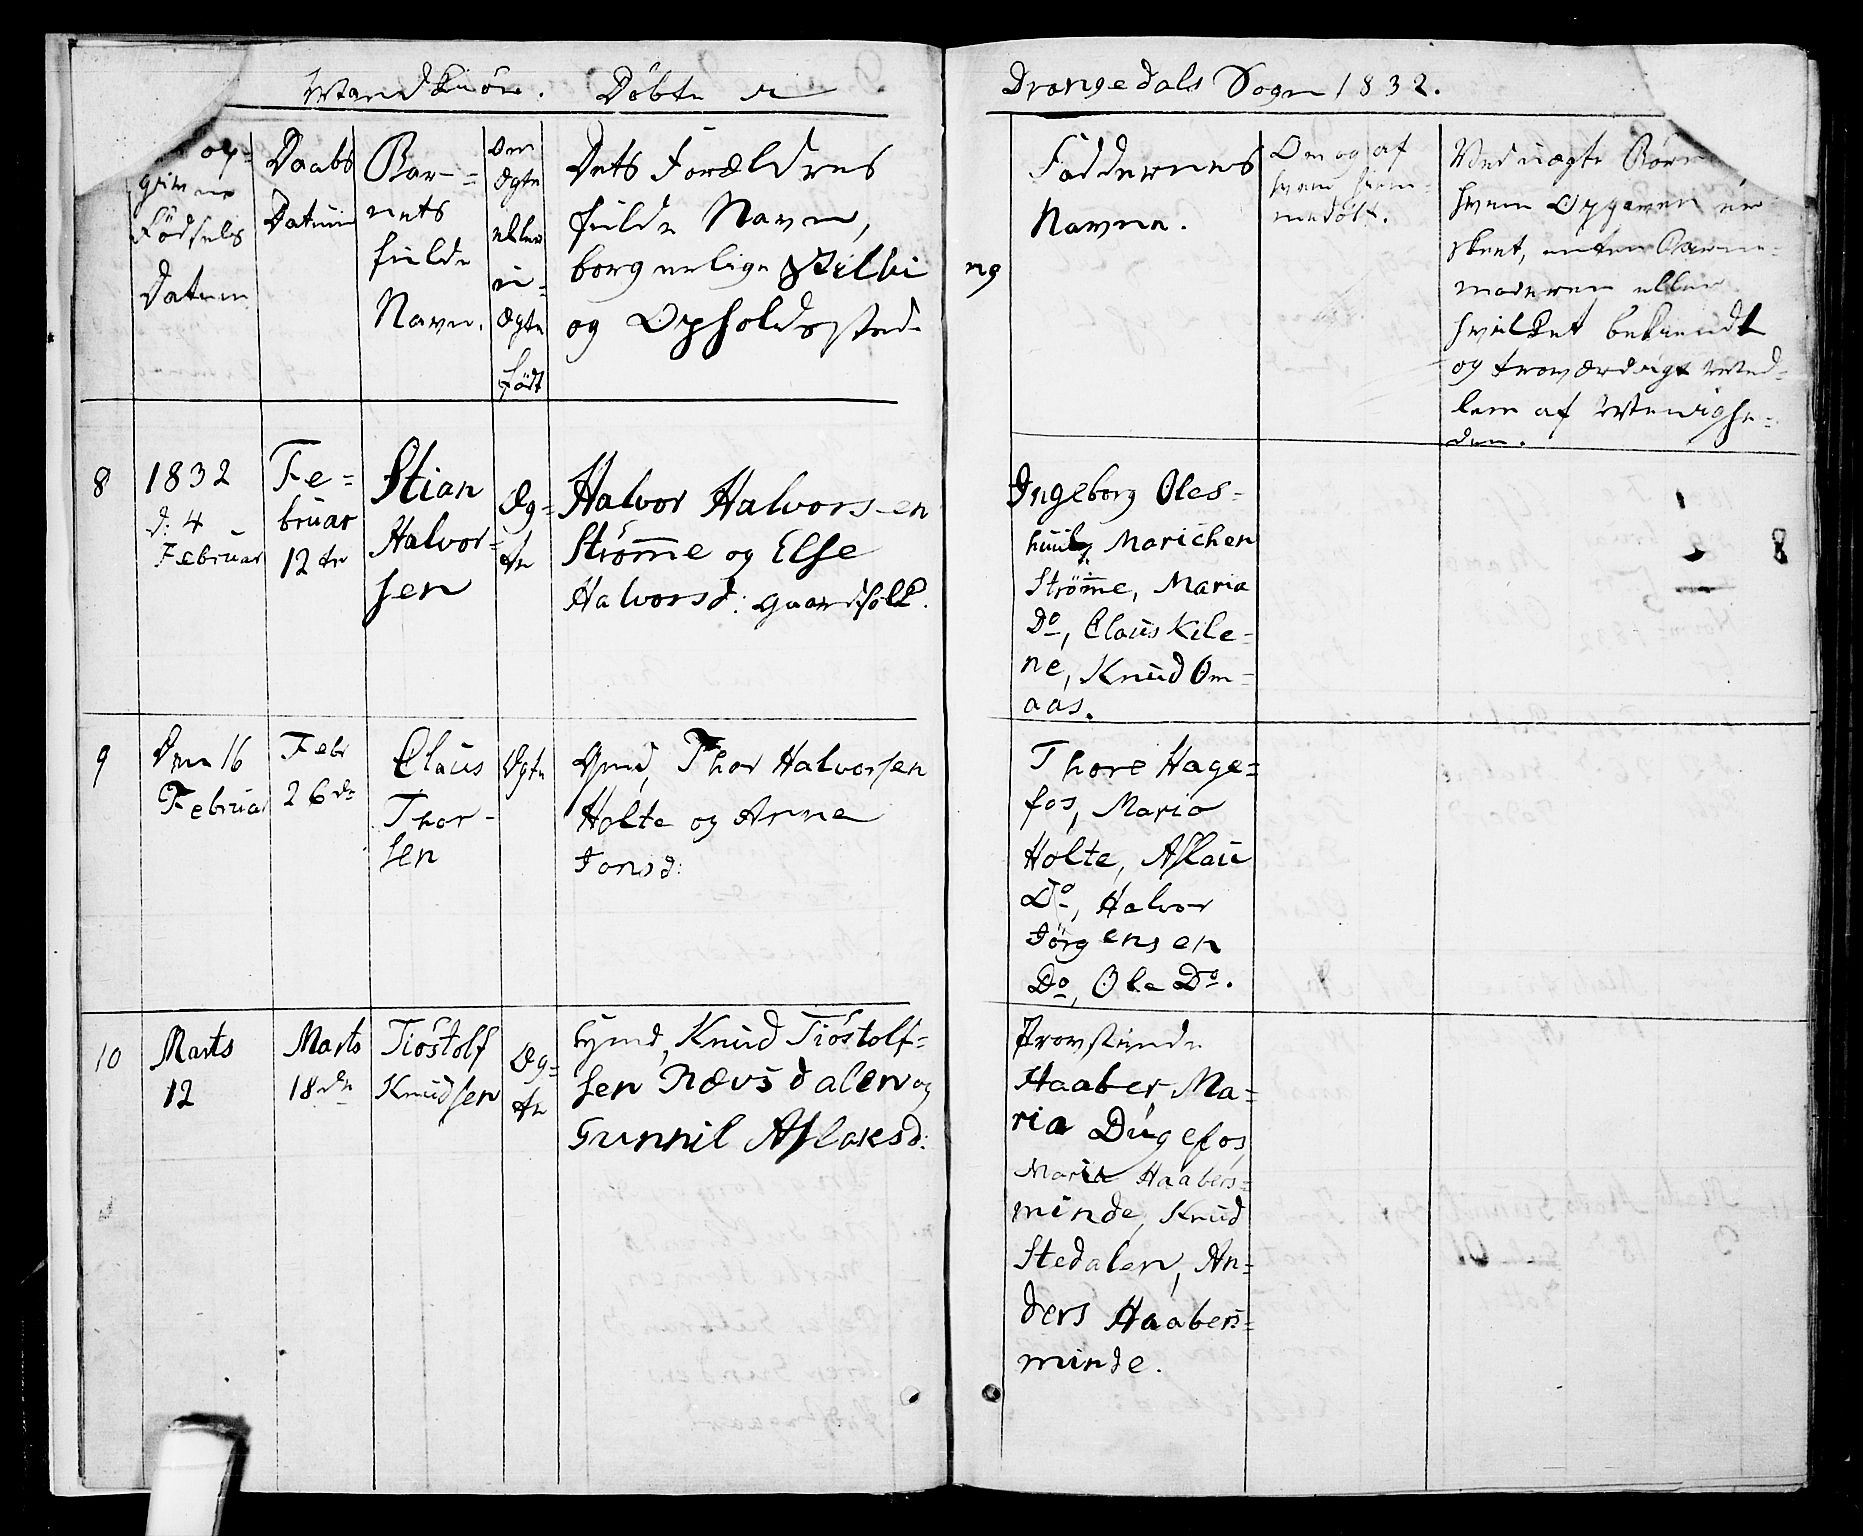 Mandkiøn. Døbte i
Drangedals Sogn 1832.
op-
givne
Fødsels
Datum
Daabs
Datum
Bar=
nets
fulde
Navn.
Om
Ægte
eller
u=
Ægte
født
Dets Forældres
fulde Navn,
borgerlige Stilli
og Opholdssted.
ng
Faddernes
Navne.
Om og af
hvem hiem=
medøbt.
Ved uægte Børn
hvem Opgaven er
skeet, enten Barne=
moderen eller
hvilket bekiendt
og troværdigt Med=
lem af Menighe=
den.
8
1832
d: 4
Februar
Fe=
bruar
12te
Stian
Halvor=
sen
Æg=
te
Halvor Halvorsen
Strømme og Else
Halvorsd: gaardfolk.
Ingeborg Oles=
huul, Marichen
Strømme, Maria
Do, Claus Kile-
ne, Knud Om=
aas.
8
9
Den 16
Februar
Febr
26de
Claus
Thor-
sen
Ægte
Gmd, Thor Halvorsen
Holte og Anne
Jonsd:
Thore Hage=
fos, Maria
Holte, Aslau
Do, Halvor
Jørgensen
Do, Ole Do.
10
Marts
12
Marts
18de
Tiøstolf
Knudsen
Æg=
te
Gmd, Knud Tiøstolf=
sen Nævsdalen og
Gunnil Aslaksd:
Provstinde
Haaber, Ma=
ria Dugefos,
Maria Haabers=
minde, Knud
Stedalen, An=
ders Haabers=
minde.